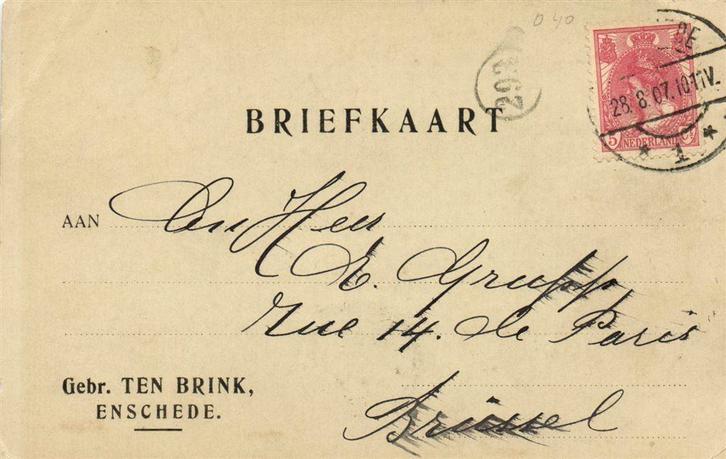 D 40
203
28.8.07.10-11V.
1
5
NEDERLAND
BRIEFKAART
AAN Den Heer
E. Grupp,
Rue 14. de Paris
Brüssel
Gebr. TEN BRINK,
ENSCHEDE.